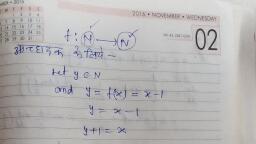 2016 • NOVEMBER • WEDNESDAY
02
f : N → N
आच्छादक के लिये –
Let y ∈ N
and y = f(x) = x - 1
y = x - 1
y+1 = x